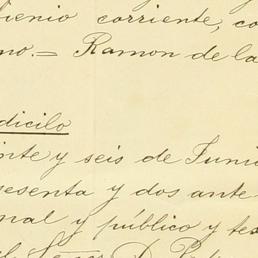 ienio corriente, co
no.= Ramon de la
dicilo
inte y seis de Junio
esenta y dos ante
nal y público y tes